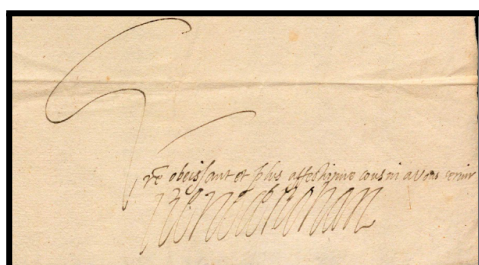 Vre obeissant et plus affectionne cousin a vous servir
Henri de Rohan